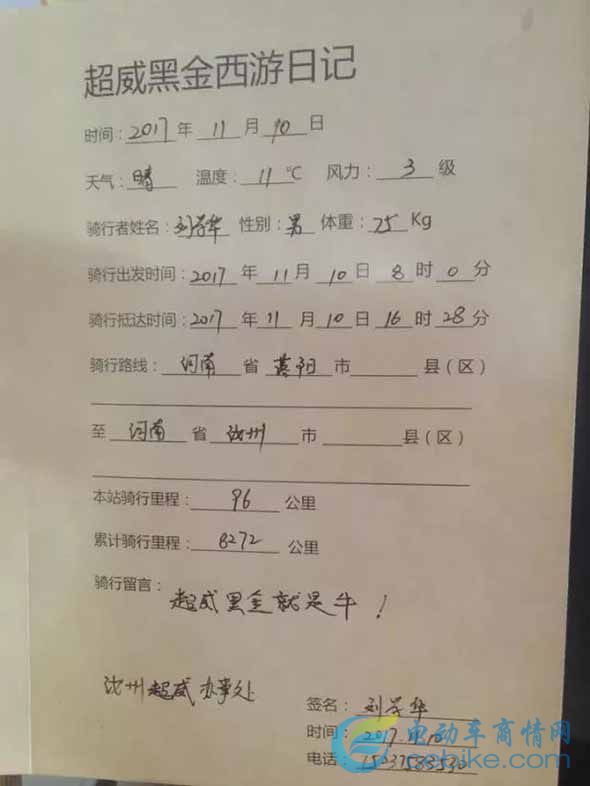 超威黑金西游日记
时间：2017年11月10日
天气：晴 温度：11℃ 风力：3级
骑行者姓名：刘学华 性别：男 体重：75Kg
骑行出发时间：2017年11月10日8时0分
骑行抵达时间：2017年11月10日16时28分
骑行路线：河南省 市 县（区）
至 河南省 汝州市 县（区）
本站骑行里程：96公里
累计骑行里程：8272公里
骑行留言：
超威黑金就是牛！
汝州超威办事处
签名：刘学华
时间：2017.11.10
电话：
电动车商情网
ebike.com